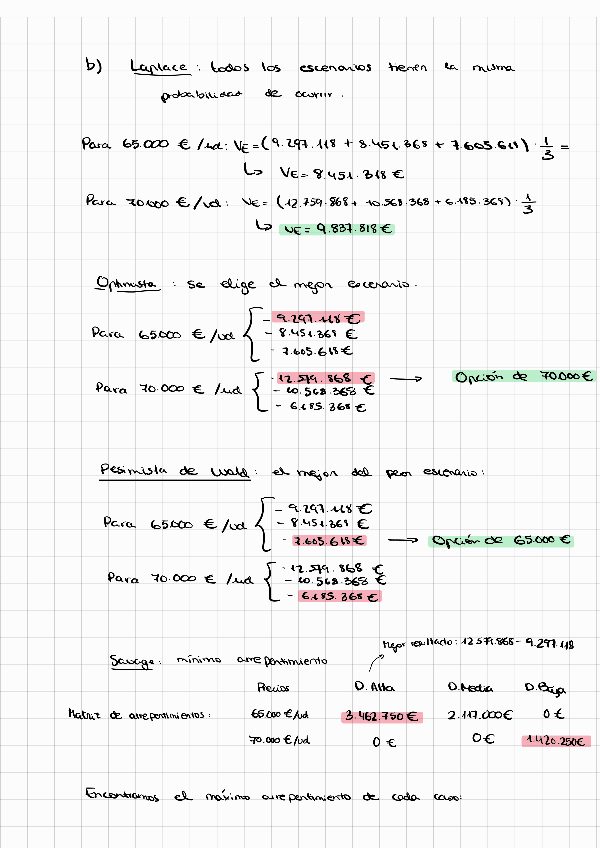 b) Laplace : todos los escenarios tienen la misma
probabilidad de ocurrir.
Para 65.000 €/ud: VE=(9.297.118 + 8.451.368 + 7.605.618) · 1/3 =
↳ VE= 8.451.318 €
Para 70.000 €/ud: VE= (12.759.868 + 10.568.368 + 6.185.368) · 1/3
↳ VE= 9.837.818 €
Optimista : se elige el mejor escenario.
- 9.297.118 €
Para 65.000 €/ud - 8.451.368 €
- 7.605.618 €
- 12.579.868 € → Opción de 70.000 €
Para 70.000 €/ud - 10.568.368 €
- 6.185.368 €
Pesimista de Wald : el mejor del peor escenario:
- 9.297.118 €
Para 65.000 €/ud - 8.451.368 €
- 7.605.618 € → Opción de 65.000 €
- 12.579.868 €
Para 70.000 €/ud - 10.568.368 €
- 6.185.368 €
Mejor resultado: 12.579.868 - 9.297.118
Savage: mínimo arrepentimiento
Precios D. Alta D. Media D. Baja
Matriz de arrepentimientos: 65.000 €/ud 3.462.750 € 2.117.000 € 0 €
70.000 €/ud 0 € 0 € 1.420.250 €
Encontramos el máximo arrepentimiento de cada caso: